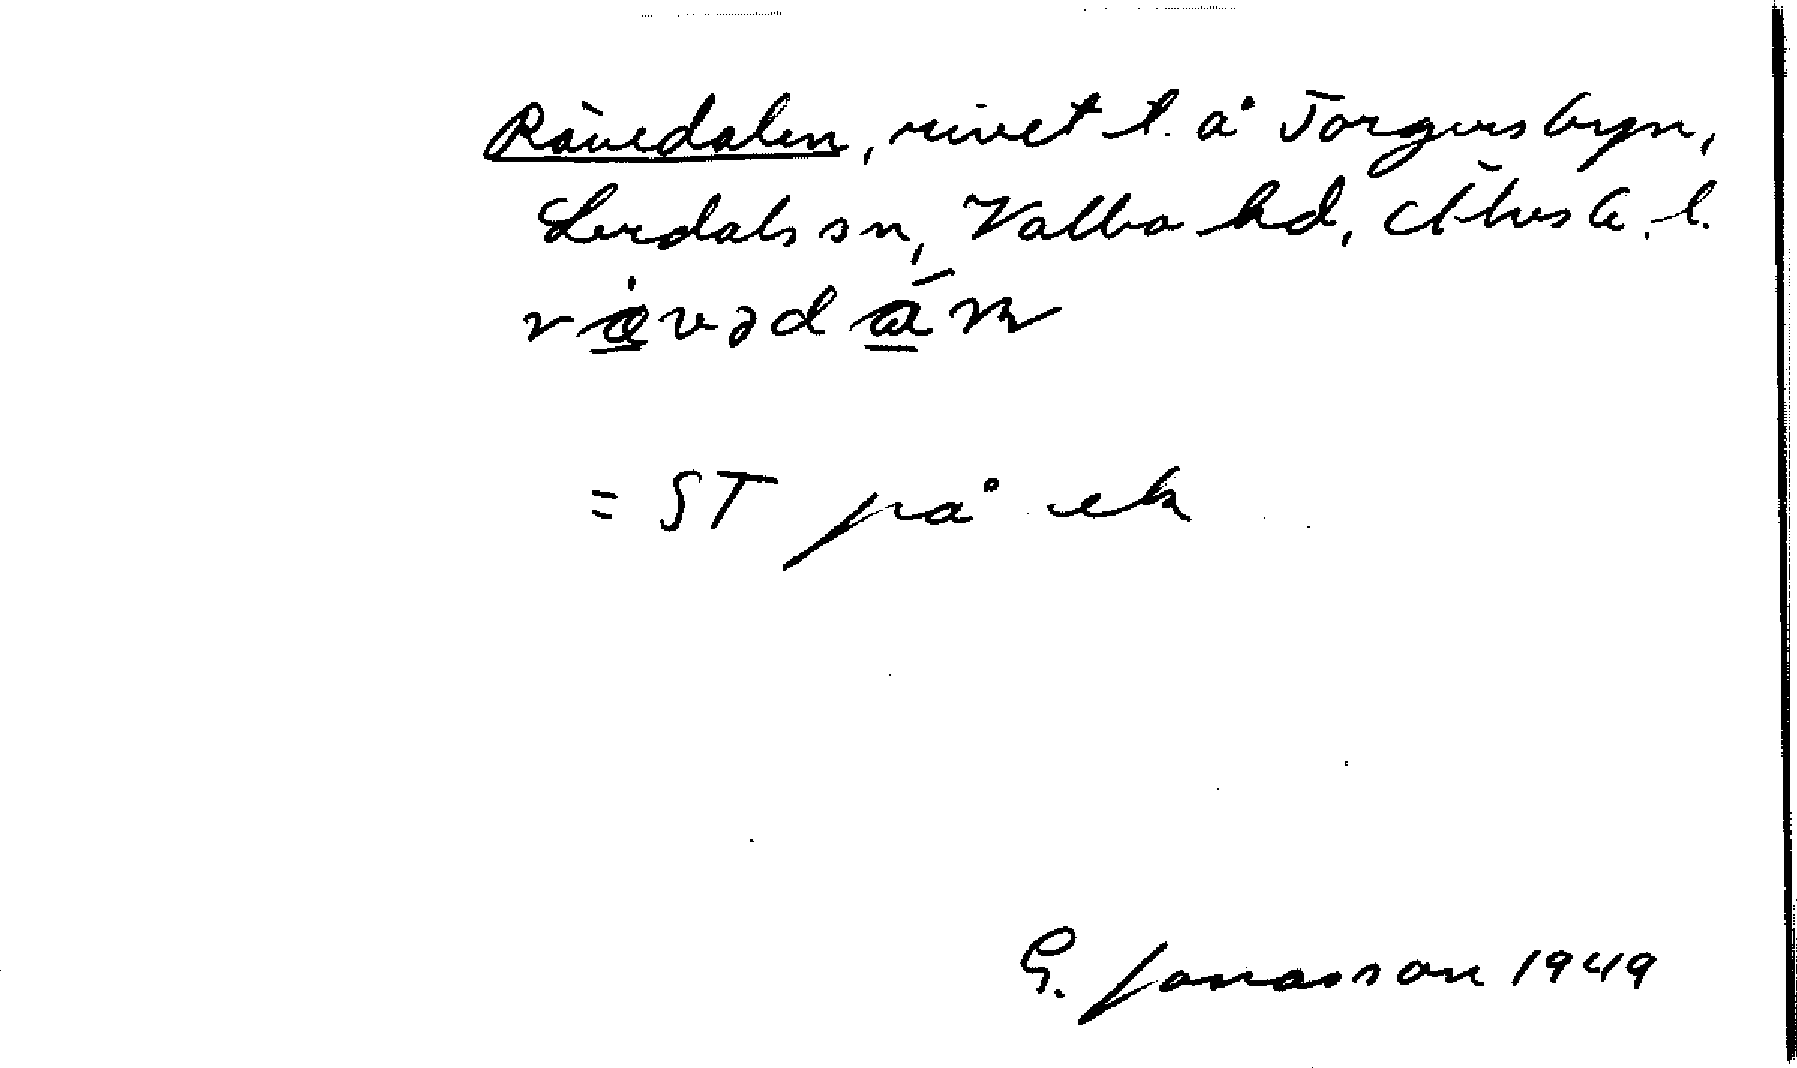 Rävedalen, rivet t. å Torgersbyn,
Lerdals sn, Valbo hd, Älvsb. l.
= ST på ek
G. Jonasson 1949